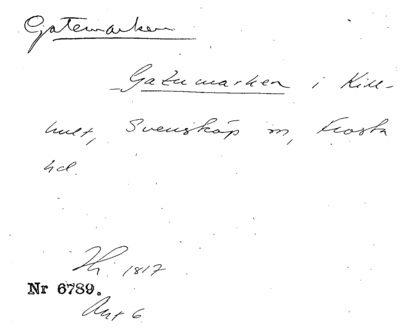 Gatemarken
Gatumarken i Kill-
hult, Svensköp sn, Frosta
hd.
1817
Nr 6789.
Akt 6